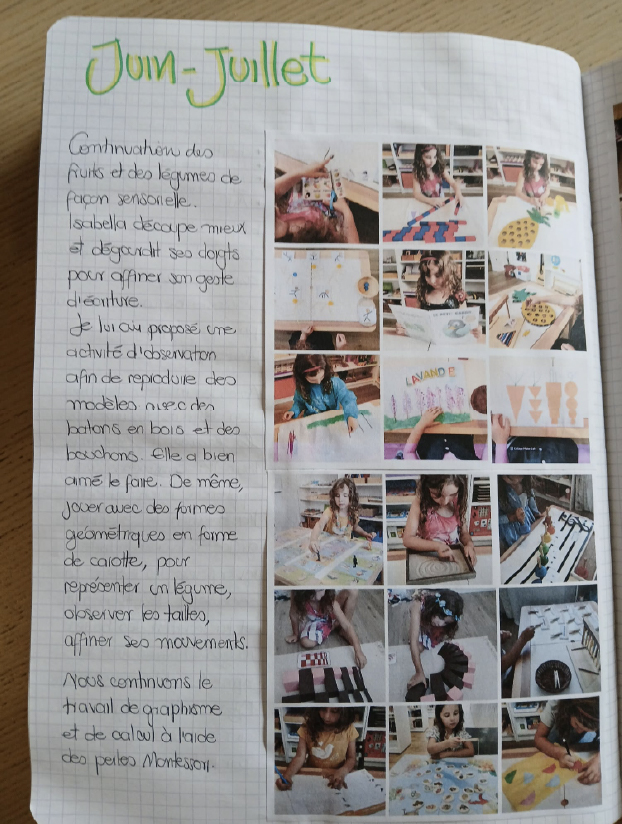 Juin-Juillet
Continuation des
fruits et des légumes de
façon sensorielle.
Isabella découpe mieux
et dégourdit ses doigts
pour affiner son geste
d'écriture.
Je lui ai proposé une
activité d'observation
afin de reproduire des
modèles avec des
batons en bois et des
bouchons. Elle a bien
aimé le faire. De même,
jouer avec des formes
géométriques en forme
de carotte, pour
représenter un légume,
observer les tailles,
affiner ses mouvements.
Nous continuons le
travail de graphisme
et de calcul à l'aide
des perles Montessori.
LAVANDE